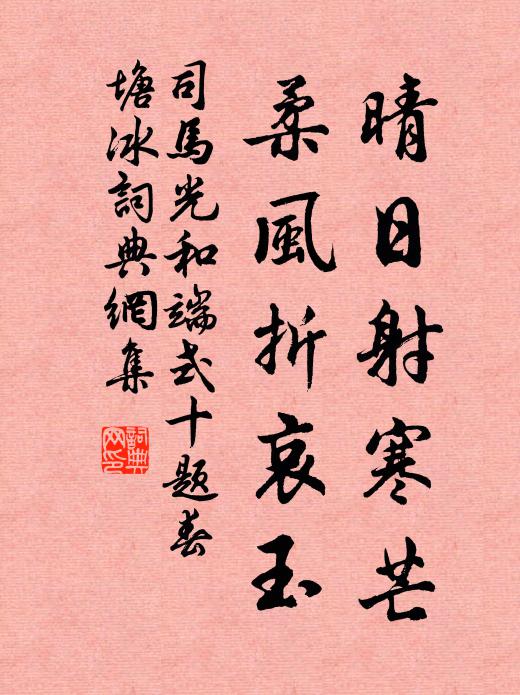 晴日射寒芒
柔風折哀玉
司馬光和端式十題春
塘冰詞典網集
詞典
网印